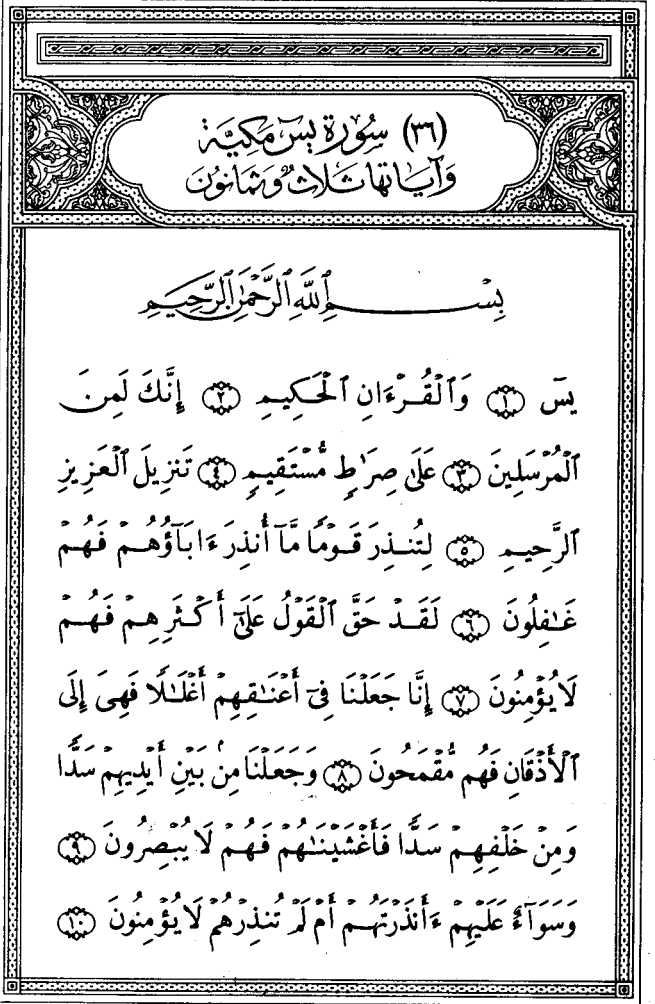 (٣٦) سُورَةُ يسٓ مَكِيَّة
وَآيَاتُهَا ثَلَاثٌ وَثَمَانُونَ
بِسْمِ ٱللَّهِ ٱلرَّحْمَٰنِ ٱلرَّحِيمِ
يسٓ ١ وَٱلْقُرْءَانِ ٱلْحَكِيمِ ٢ إِنَّكَ لَمِنَ
ٱلْمُرْسَلِينَ ٣ عَلَىٰ صِرَٰطٍ مُّسْتَقِيمٍ ٤ تَنزِيلَ ٱلْعَزِيزِ
ٱلرَّحِيمِ ٥ لِتُنذِرَ قَوْمًا مَّآ أُنذِرَ ءَابَآؤُهُمْ فَهُمْ
غَٰفِلُونَ ٦ لَقَدْ حَقَّ ٱلْقَوْلُ عَلَىٰٓ أَكْثَرِهِمْ فَهُمْ
لَا يُؤْمِنُونَ ٧ إِنَّا جَعَلْنَا فِىٓ أَعْنَٰقِهِمْ أَغْلَٰلًا فَهِىَ إِلَى
ٱلْأَذْقَانِ فَهُم مُّقْمَحُونَ ٨ وَجَعَلْنَا مِنۢ بَيْنِ أَيْدِيهِمْ سَدًّا
وَمِنْ خَلْفِهِمْ سَدًّا فَأَغْشَيْنَٰهُمْ فَهُمْ لَا يُبْصِرُونَ ٩
وَسَوَآءٌ عَلَيْهِمْ ءَأَنذَرْتَهُمْ أَمْ لَمْ تُنذِرْهُمْ لَا يُؤْمِنُونَ ١٠